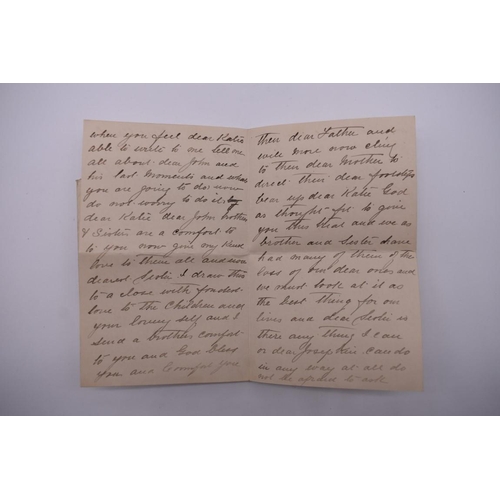 when you feel dear Katie
able to write to me tell me
all about dear John and
his Last Moments and what
you are going to do now
do not worry to do it
dear Katie dear John brothers
& Sister are a comfort to
to you now give my kind
love to them all and now
dearest I draw this
to a close with fondest
love to the Children and
your loving self and I
send a brothers comfort
to you and God bless
you and Comfort you
then dear Father and
will more now cling
to their dear Mother to
direct their dear footsteps
bear up dear Katie God
as thought fit to give
you this trial and we as
brother and Sister have
had many of them & the
loss of our dear ones and
we must look at it as
the best thing for our
lives and dear is
there any thing I can
or dear Josephine can do
in any way at all do
not be afraid to ask